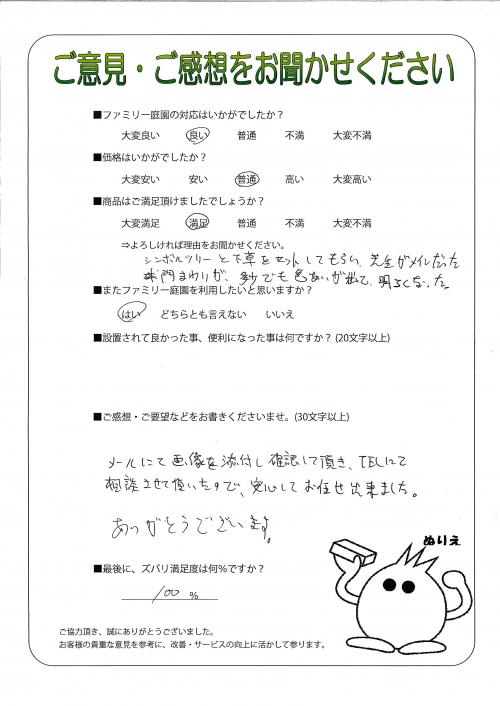 ご意見・ご感想をお聞かせください
■ファミリー庭園の対応はいかがでしたか？
大変良い 良い 普通 不満 大変不満
■価格はいかがでしたか？
大変安い 安い 普通 高い 大変高い
■商品はご満足頂けましたでしょうか？
大変満足 満足 普通 不満 大変不満
⇒よろしければ理由をお聞かせください。
シンボルツリーと下草をセットしてもらい、
門まわりが、 でも色あいが出て、明るくなった。
■またファミリー庭園を利用したいと思いますか？
はい どちらとも言えない いいえ
■設置されて良かった事、便利になった事は何ですか？ (20文字以上)
■ご感想・ご要望などをお書きくださいませ。(30文字以上)
メールにて画像を添付し確認して頂き、TELにて
相談させて頂いたので、安心してお任せ出来ました。
ありがとうございます。
ぬりえ
■最後に、ズバリ満足度は何％ですか？
100 %
ご協力頂き、誠にありがとうございました。
お客様の貴重な意見を参考に、改善・サービスの向上に活かして参ります。